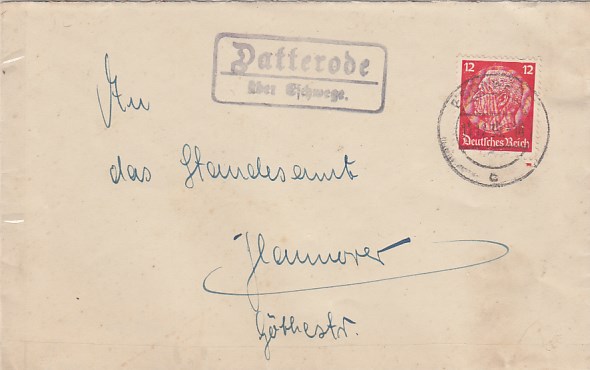 Datterode
über Eschwege.
12 12
Deutsches Reich
An
das Standesamt
Hannover
Göthestr.